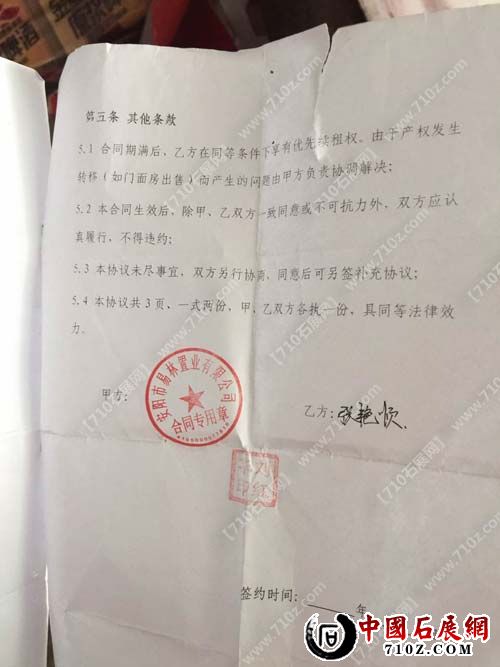 第五条 其他条款
5.1 合同期满后，乙方在同等条件下享有优先续租权。由于产权发生
转移（如门面房出售）而产生的问题由甲方负责协调解决；
5.2 本合同生效后，除甲、乙双方一致同意或不可抗力外，双方应认
真履行，不得违约；
5.3 本协议未尽事宜，双方另行协商、同意后可另签补充协议；
5.4 本协议共3页、一式两份，甲、乙双方各执一份，具同等法律效
力。
甲方：
安阳市易林置业有限公司
合同专用章
乙方：张艳顺
红
印
签约时间： 年
中國石展網
710Z.COM
【710石展网】
www.710z.com